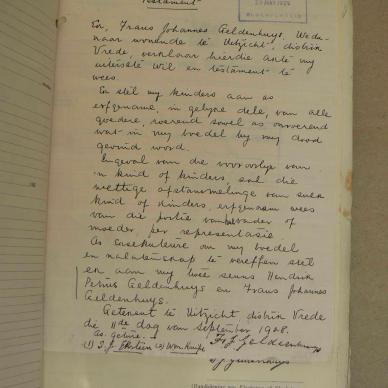 Testament
Ek, Frans Johannes Geldenhuys, Wedu-
naar wonende te Uitzicht, distrik
Vrede verklaar hierdie akte my
uiterste wil en testament te
wees.
Ek stel my kinders aan as
erfgename, in gelyke dele, van alle
goedere, roerend sowel as onroerend
wat in my boedel by my dood
gevind word.
Ingeval van die vooroorlye van
'n kind of kinders, sal die
wettige afstammelinge van sulk
kind of kinders, erfgenaam wees
van die portie van hul vader of
moeder, per representasie
As Eksekuteure om my boedel
en nalatenskap te vereffen stel
ek aan my twee seuns Hendrik
Petrus Geldenhuys en Frans Johannes
Geldenhuys.
Geteken te Uitzicht, distrik Vrede
die 11de dag van September 1928.
As getuie. F J Geldenhuys
(1) S. J. Eksteen (2)